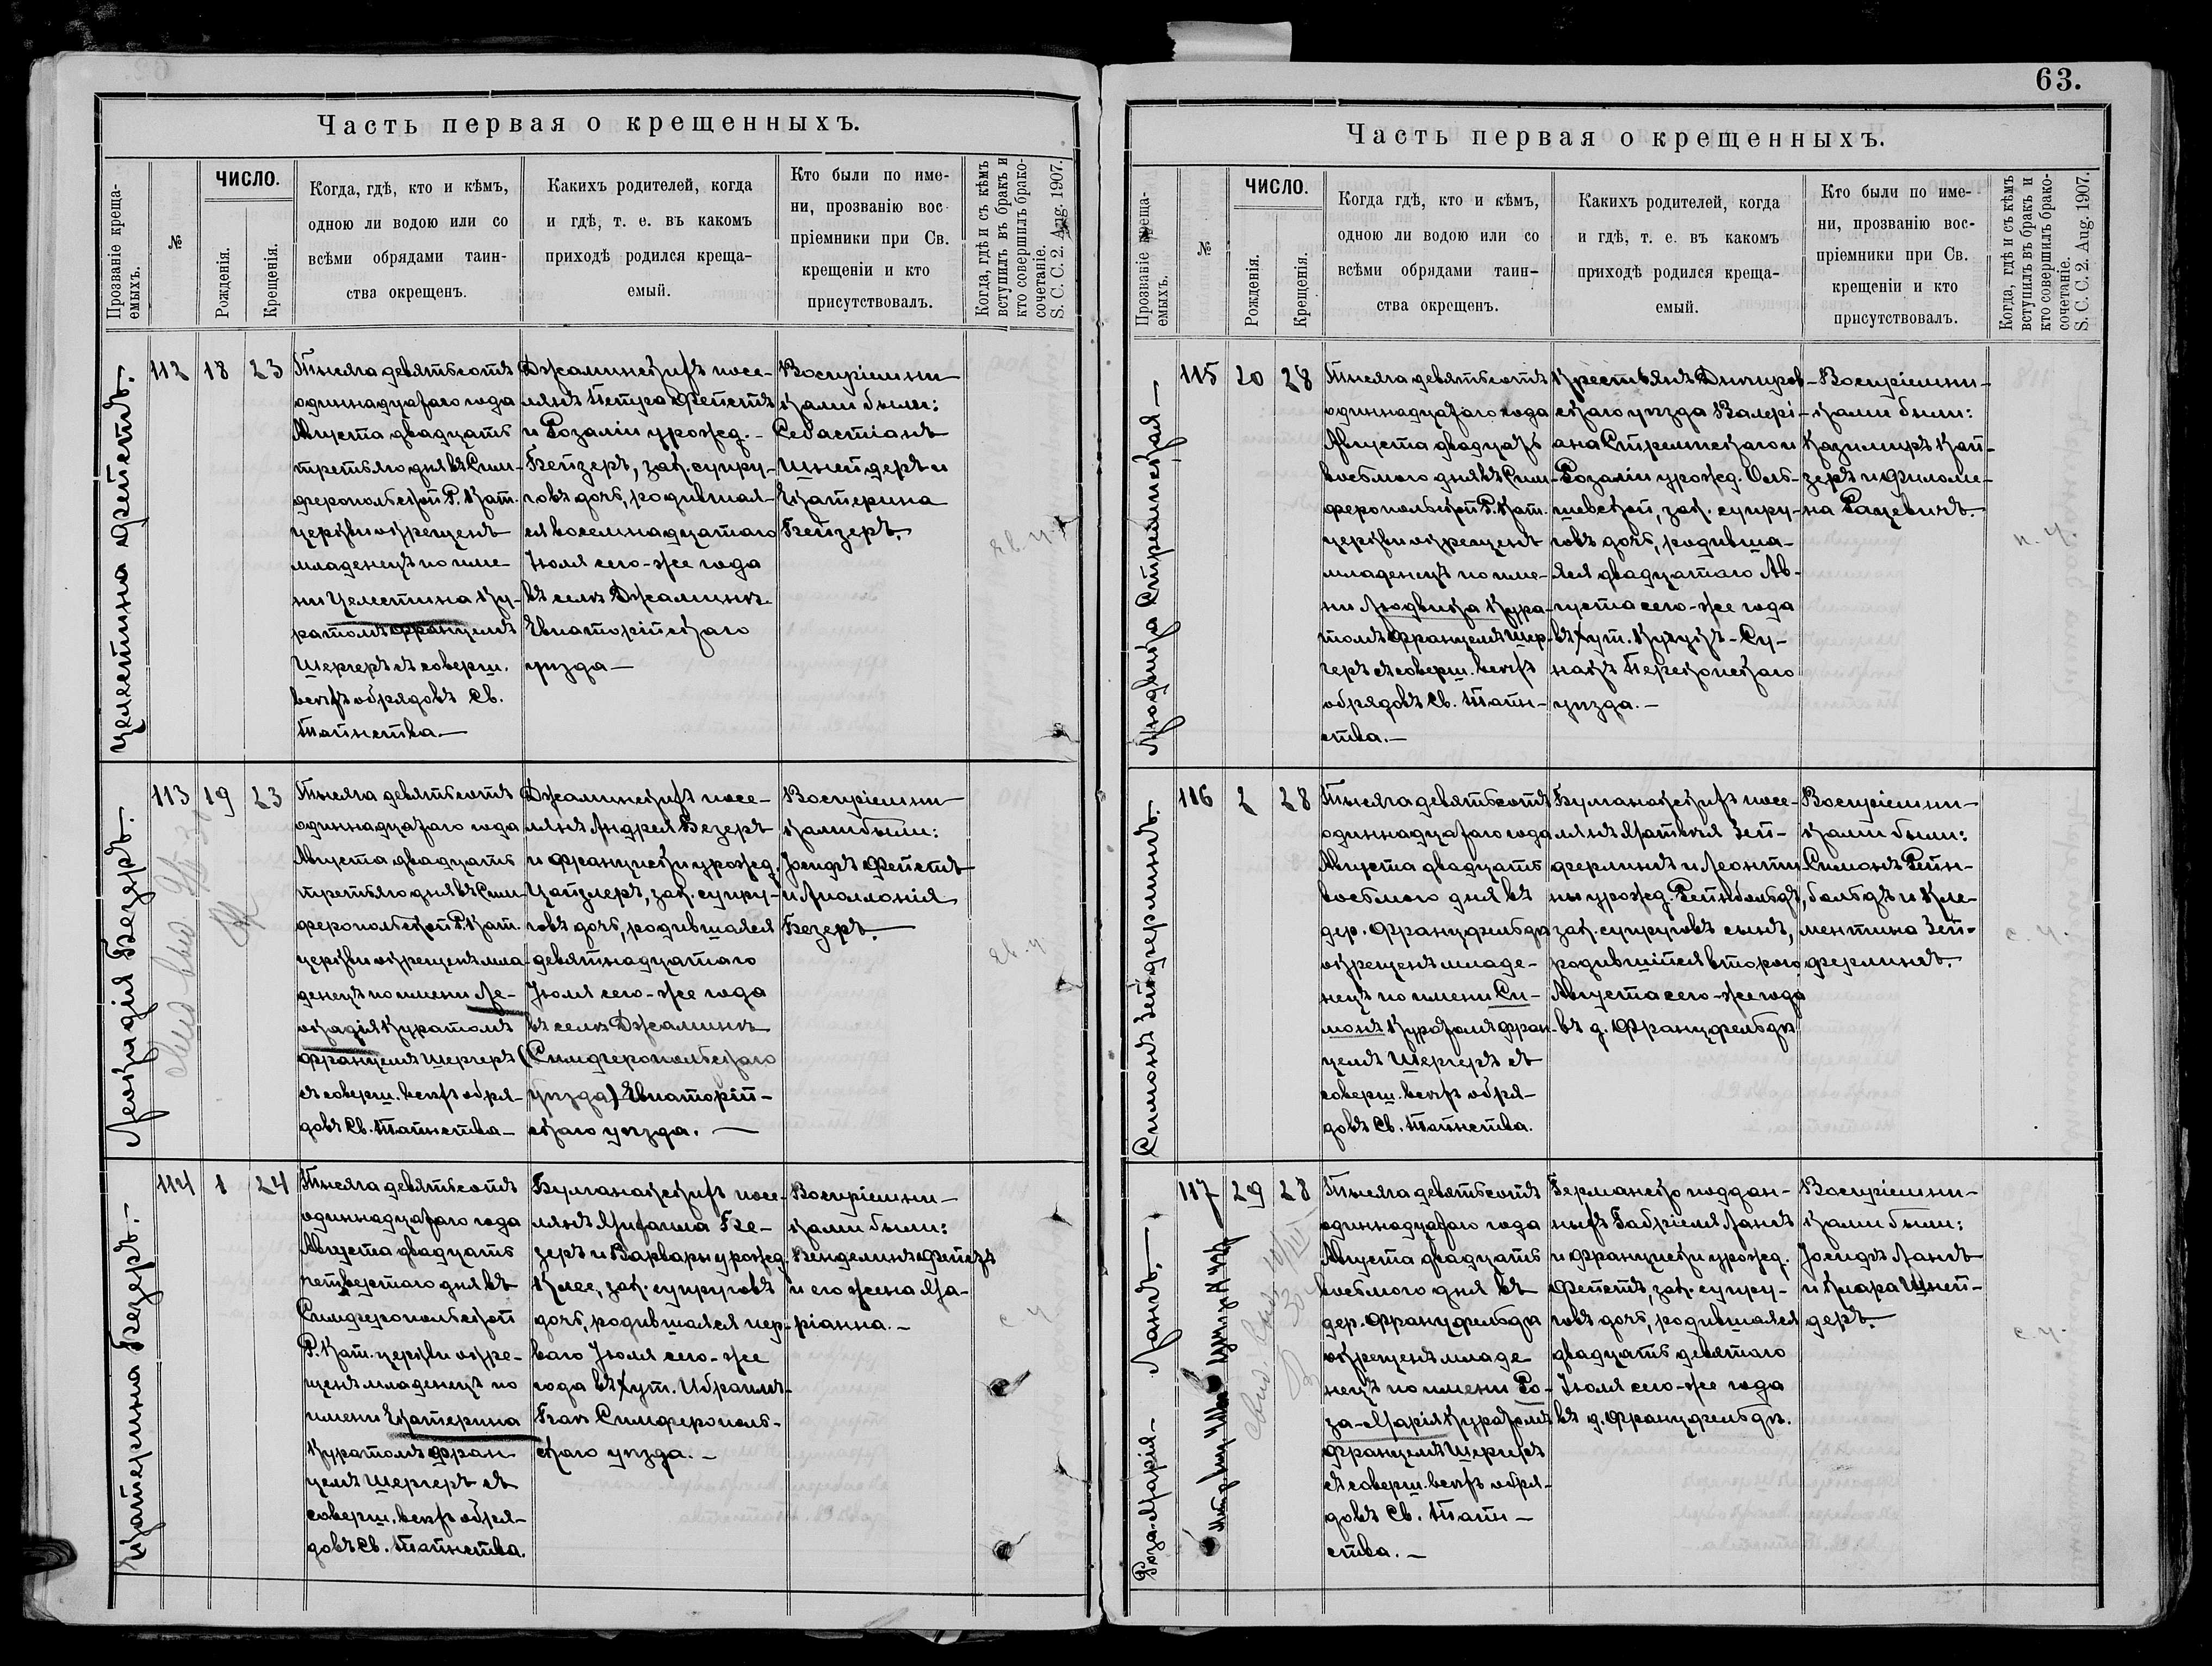 63.
Часть первая о крещенныхъ.
Прозваніе креща-
емыхъ.
№
ЧИСЛО.
Рожденія.
Крещенія.
Когда, гдѣ, кто и кѣмъ,
одною ли водою или со
всѣми обрядами таин-
ства окрещенъ.
Какихъ родителей, когда
и гдѣ, т. е. въ какомъ
приходѣ родился креща-
емый.
Кто были по име-
ни, прозванію вос-
пріемники при Св.
крещеніи и кто
присутствовалъ.
Когда, гдѣ и съ кѣмъ
вступилъ въ бракъ и
кто совершилъ брако-
сочетаніе.
S. C. C. 2. Aug. 1907.
Целестина Фейстъ.
112 18 23
Тысяча девятьсотъ
одиннадцатаго года
Августа двадцать
третьяго дня въ Сим-
феропольской Р. Кат.
церкви окрещенъ
младенецъ по име-
ни Целестина Ку-
ратомъ Францемъ
Шергеръ съ соверш.
всѣхъ обрядовъ Св.
Таинства.—
Джаминскихъ посе-
лянъ Петра Фейстъ
и Розаліи урожд.-
Бейзеръ, зак. супру-
говъ дочь, родившая-
ся восемнадцатаго
Іюля сего-же года
въ селѣ Джаминъ
Евпаторійскаго
уѣзда—
Воспріемни-
ками были:
Себастіанъ
Шнейдеръ и
Екатерина
Бейзеръ.
Леокадія Безеръ.
113 19 23
Тысяча девятьсотъ
одиннадцатаго года
Августа двадцать
третьяго дня въ Сим-
феропольской Р. Кат.
церкви окрещенъ мла-
денецъ по имени Ле-
окадія Куратомъ
Францемъ Шергеръ
съ соверш. всѣхъ обря-
довъ Св. Таинства—
Джаминскихъ посе-
лянъ Андрея Безеръ
и Француски урожд.
Цайзлеръ, зак. супру-
говъ дочь, родившаяся
девятнадцатаго
Іюля сего-же года
въ селѣ Джаминъ
(Симферопольскаго
уѣзда) Евпаторій-
скаго уѣзда. —
Воспріемни-
ками были:
Іосифъ Фейстъ
и Аполлонія
Безеръ.
Екатерина Безеръ.-
114 1 24
Тысяча девятьсотъ
одиннадцатаго года
Августа двадцать
четвертаго дня въ
Симферопольской
Р. Кат. церкви окре-
щенъ младенецъ по
имени Екатерина
Куратомъ Фран-
цемъ Шергеръ съ
соверш. всѣхъ обря-
довъ Св. Таинства.
Булганакскихъ посе-
лянъ Михаила Бе-
зеръ и Варвары урожд.
Клее, зак. супруговъ
дочь, родившаяся пер-
ваго Іюля сего-же
года въ хут. Ибраимъ-
Бай Симферополь-
скаго уѣзда.-
Воспріемни-
ками были:
Венделинъ Фейстъ
и его жена Ма-
ріанна.-
Часть первая о крещенныхъ.
Прозваніе креща-
емыхъ.
№
ЧИСЛО.
Рожденія.
Крещенія.
Когда гдѣ, кто и кѣмъ,
одною ли водою или со
всѣми обрядами таин-
ства окрещенъ.
Какихъ родителей, когда
и гдѣ, т. е. въ какомъ
приходѣ родился креща-
емый.
Кто были по име-
ни, прозванію вос-
пріемники при Св.
крещеніи и кто
присутствовалъ.
Когда, гдѣ и съ кѣмъ
вступилъ въ бракъ и
кто совершилъ брако-
сочетаніе.
S. C. C. 2. Aug. 1907.
Людвика Стрешевская—
115 20 28
Тысяча девятьсотъ
одиннадцатаго года
Августа двадцать
восьмого дня въ Сим-
феропольской Р. Кат.
церкви окрещенъ
младенецъ по име-
ни Людвика Кура-
томъ Францемъ Шер-
геръ съ соверш. всѣхъ
обрядовъ Св. Таин-
ства.—
Крестьянъ Днѣпров-
скаго уѣзда Валері-
ана и
Розаліи урожд. Оль-
шевской, зак. супру-
говъ дочь, родивша-
яся двадцатаго Ав-
густа сего-же года
въ хут. Кучукъ-Су-
накъ Перекопскаго
уѣзда.—
Воспріемни-
ками были:
Казимиръ Кай-
зеръ и Филоме-
на Рацевичъ.
н. ч.
Симонъ Зейферлингъ.
116 2 28
Тысяча девятьсотъ
одиннадцатаго года
Августа двадцать
восьмого дня въ
дер. Францфельдъ
окрещенъ младе-
нецъ по имени Си-
монъ Куратомъ Фран-
цемъ Шергеръ съ
соверш. всѣхъ обря-
довъ Св. Таинства.
Булганакскихъ посе-
лянъ Матвѣя Зей-
ферлингъ и Леонти-
ны урожд. Рейнбольдъ,
зак. супруговъ сынъ,
родившійся второго
Августа сего-же года
въ д. Францфельдъ
Воспріемни-
ками были:
Симонъ Рейн-
больдъ и Кле-
ментина Зей-
ферлингъ.
с. ч.
Роза-Марія- Лангъ.—
117 29 28
Тысяча девятьсотъ
одиннадцатаго года
Августа двадцать
восьмого дня въ
дер. Францфельдъ
окрещенъ младе
нецъ по имени Ро-
за-Марія Куратомъ
Францемъ Шергеръ
съ соверш. всѣхъ обря-
довъ Св. Таин-
ства.—
Германско поддан-
ныхъ Габріеля Лангъ
и Француски урожд.
Фейстъ, зак. супру-
говъ дочь, родившаяся
двадцать девятаго
Іюля сего-же года
въ д. Францфельдъ.
Воспріемни-
ками были:
Іосифъ Лангъ
и Клара Шней-
деръ.
с. ч.